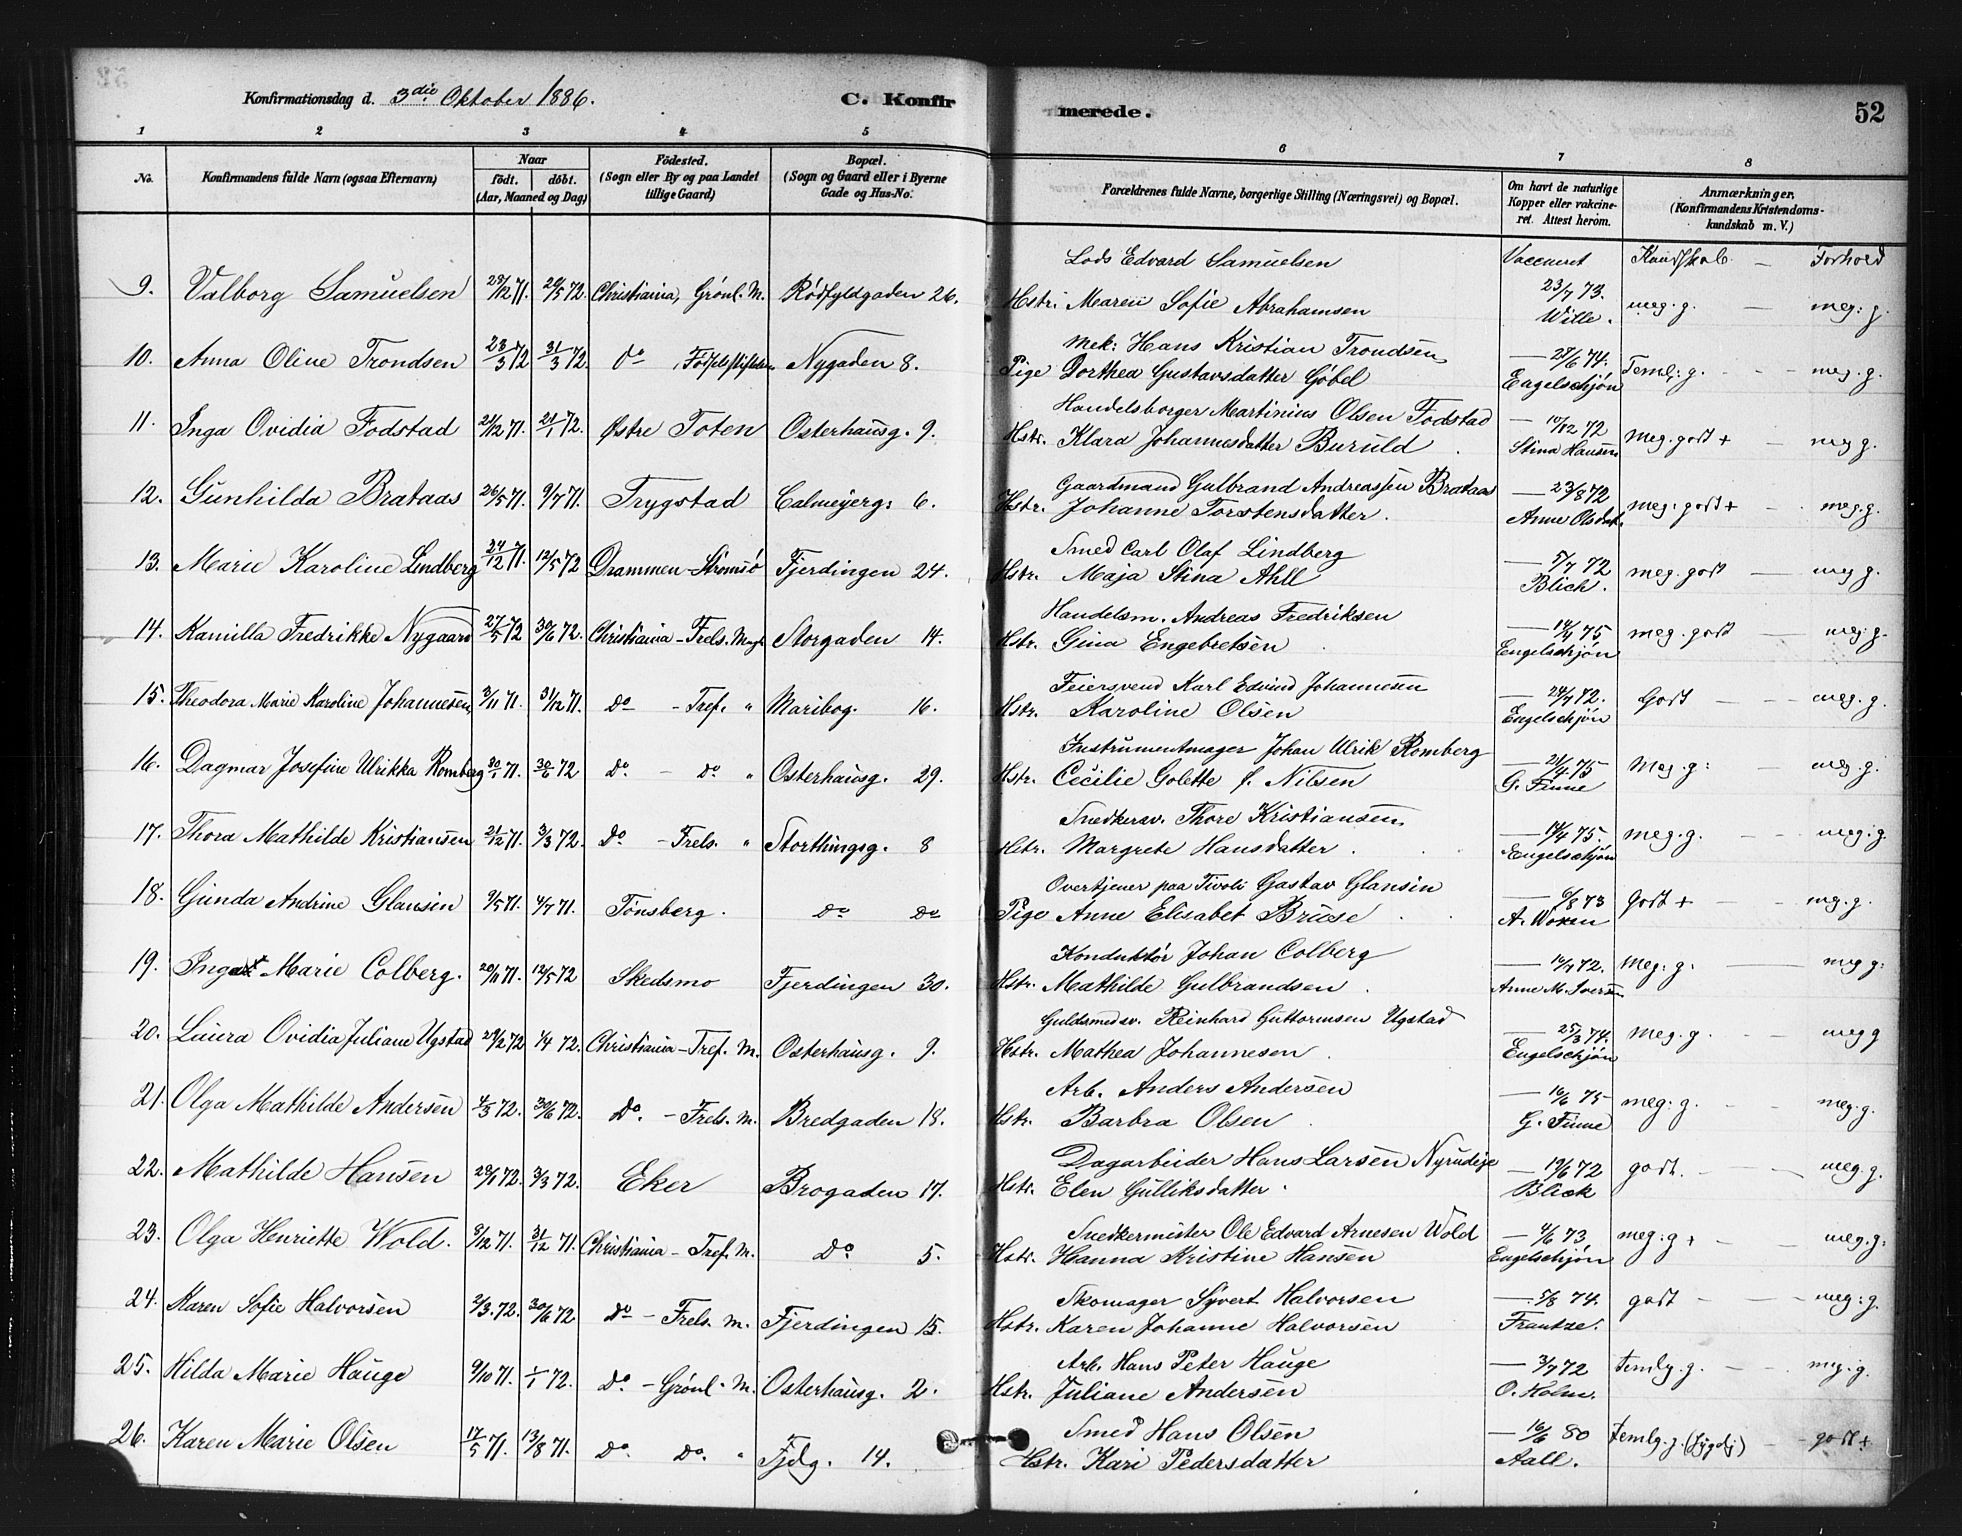 Konfirmationsdag d. 3die Oktober 1886. C. Konfirmerede. 52
1 2 3 4 5 6 7 8
No. Konfirmandens fulde Navn (ogsaa Efternavn) Naar født. døbt. (Aar, Maaned og Dag) Fødested. (Sogn eller By og paa Landet tillige Gaard) Bopæl. (Sogn og Gaard eller i Byerne Gade og Hus-No. Forældrenes fulde Navne, borgerlige Stilling (Næringsvei) og Bopæl. Om havt de naturlige Kopper eller vakcineret. Attest herom. Anmærkninger. (Konfirmandens Kristendomskundskab m. V.)
Lods Edvard Samuelsen Vaccineret Kundskab — Forhold
9. Valborg Samuelsen 28/12 71. 20/5 72. Christiania, Grönl. M. Rödfyldgaden 26. Hstr. Maren Sofie Abrahamsen 23/7 73. Wille. meg. g. meg. g.
Mek. Hans Kristian Trondsen
10. Anna Oline Trondsen 23/3 72 31/3 72. do Födselsstiftelsen Nygaden 8. Pige Dorthea Gustavsdatter Göbel — 28/6 74. Engelschjön Temlg. g. - - meg. g.
Handelsborger Martinius Olsen Fodstad
11. Inga Ovidia Fodstad 21/12 71. 21/1 72. Østre Toten Osterhausg. 9. Hstr. Klara Johannesdatter Buruld — 10/12 72 Stina Hansen meg. godt + - meg g.
Gaardmand Gulbrand Andreassen Brataas
12. Gunhilda Brataas 26/5 71. 9/7 71. Trygstad Calmeyerg. 6. Hstr. Johanne Torstensdatter. — 23/8 72 Anne Olsdat. meg. godt + - meg. g.
Smed Carl Olaf Lindberg
13. Marie Karoline Lindberg 24/12 71. 12/5 72 Drammen - Strömsö Fjerdingen 24. Hstr. Maja Stina Ahll — 5/7 72 Blich. meg. godt — meg g.
Handelsm. Andreas Fredriksen
14. Kamilla Fredrikke Nygaard 27/5 72 30/6 72. Christiania - Frels. Mngh. Storgaden 14. Hstr. Gina Engebretsen — 14/4 75 Engelschjön meg. godt — meg. g.
Feiersvend Karl Edvind Johannesen
15. Theodora Marie Karoline Johannesen, 3/11 71. 31/12 71. do - Tref. " Maribog. 16. Hstr. Karoline Olsen — 24/7 72. Engelschjön Godt - - meg. g.
Instrumentmager Johan Ulrik Romberg
16. Dagmar Josefine Ulrikka Romberg 30/1 71. 30/6 72 do. - do. " Osterhausg. 29. Hstr. Cecilie Golette f. Nilsen — 21/4 75 G. Finne Meg. g. - meg. g.
Snedkersv. Thore Kristiansen
17. Thora Mathilde Kristiansen 21/12 71. 3/3 72. do - Frels. " Storthingsg. 8 Hstr. Margrete Hansdatter. — 14/4 75. Engelschjön meg. g. - - meg. g.
Overtjener paa Tivoli Gustav Glansin
18. Gunda Andrine Glansin 9/5 71. 4/7 71. Tönsberg. do do Pige Anne Elisabet Bruse. — 6/8 73 A. Woxen Godt + - meg. g.
Konduktör Johan Colberg
19. Inga Marie Colberg. 20/11 71. 12/5 72 Skedsmo Fjerdingen 30. Hstr. Mathilde Gulbrandsen. — 14/7 72. Anne M. Iversen Meg. g. — meg g.
Guldsmedsv. Reinhard Guttormsen Ugstad
20. Laura Ovidia Juliane Ugstad 29/2 72 1/4 72. Christiania - Tref. M. Osterhausg. 9. Hstr. Mathea Johannesen — 25/3 74. Engelschjön Meg. g. - meg g
Arb. Anders Andersen
21. Olga Mathilde Andersen 4/3 72. 30/6 72. do. - Frels. M. Bredgaden 18. Hstr. Barbra Olsen — 16/6 75 G. Finne meg. g. - - meg. g.
Dagarbeider Hans Larsen
22. Mathilde Hansen 28/1 72. 3/3 72. Eker Brogaden 17. Hstr. Elen Gulliksdatter. — 19/6 72 Blick godt. - - meg. g.
Snedkermester Ole Edvard Arnesen Wold
23. Olga Henriette Wold. 8/12 71. 31/12 71. Christiania - Tref. M. do 5. Hstr. Hanna Kristine Hansen — 4/6 73 Engelschjön meg. g + - meg. g.
Skomager Syvert Halvorsen
24. Karen Sofie Halvorsen 2/3. 72. 30/6 72 do - Frels. M. Fjerdingen 15. Hstr. Karen Johanne Halvorsen — 5/8 74. Frantze. godt - - meg. g.
Arb. Hans Peter Hauge
25. Hilda Marie Hauge 9/10 71. 1/1 72. do. - Grönl. M. Osterhausg. 2. Hstr. Juliane Andersen — 3/7 72 O. Holm. Temlg. g. - - meg. g.
Smed Hans Olsen
26. Karen Marie Olsen 17/5 71. 13/8 71. do. do. " Fjdg. 14. Hstr. Kari Pedersdatter — 16/6 80 Aall. Temlg. g. - godt +